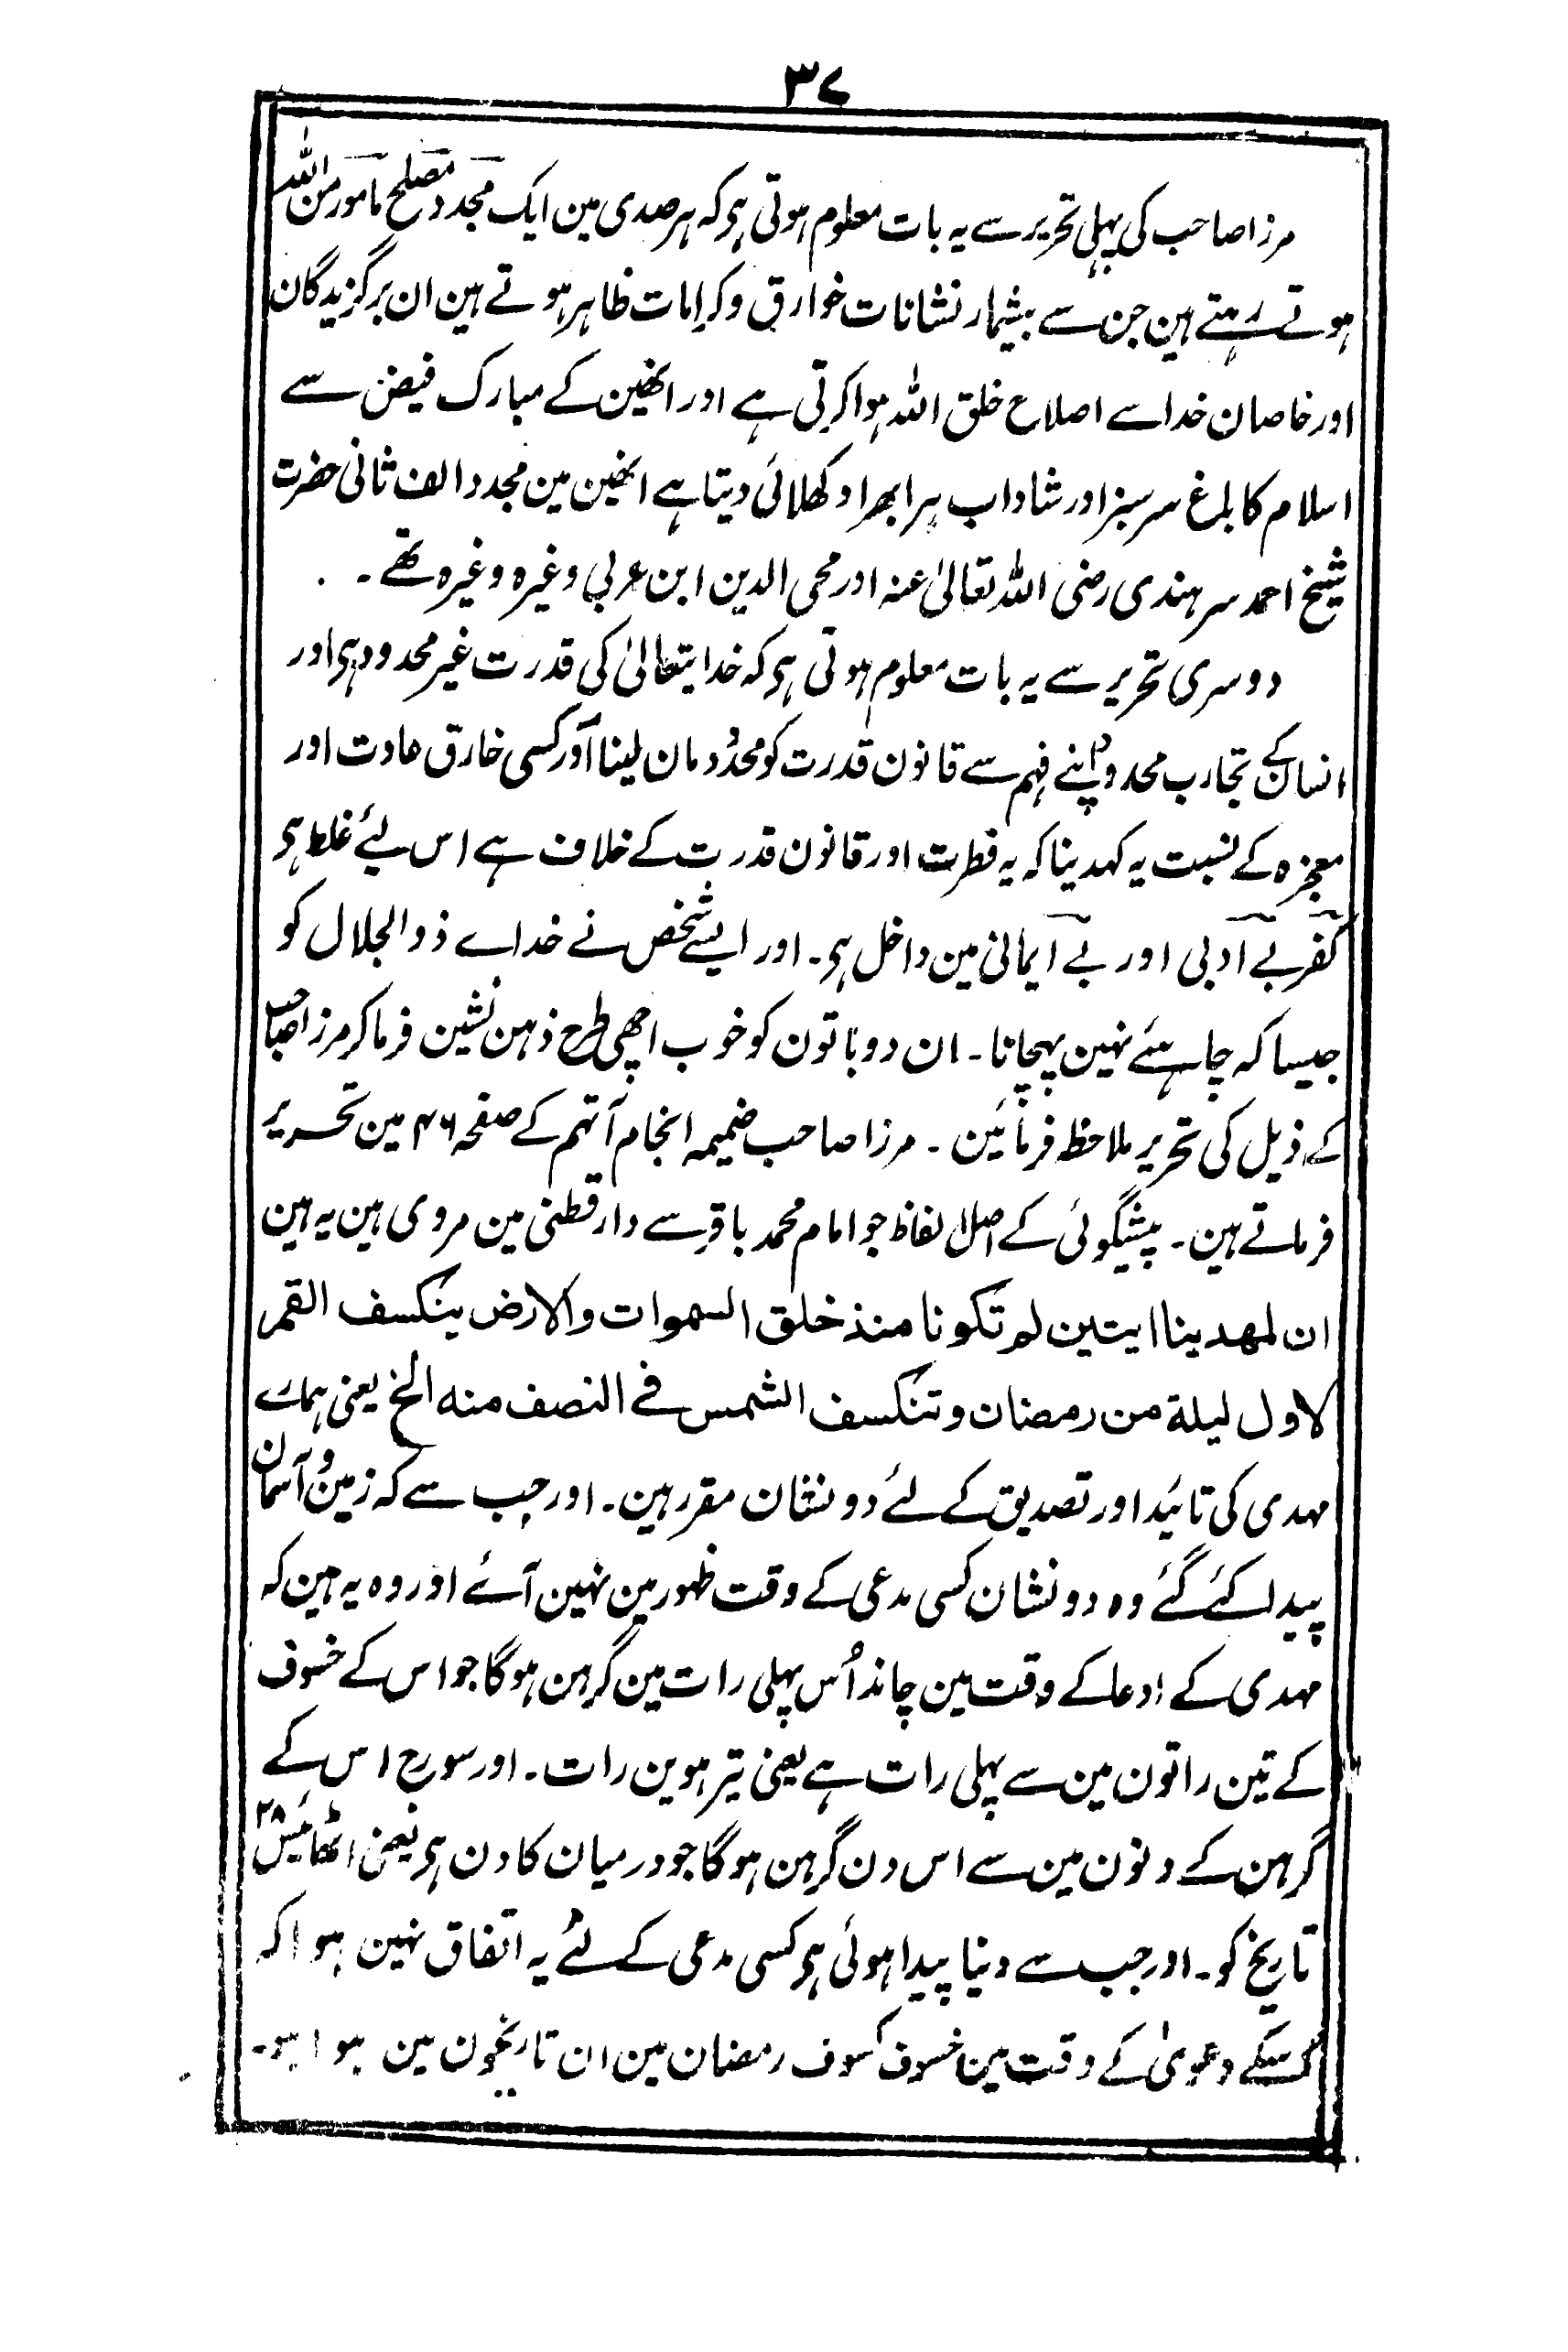 ۳۷
مرزا صاحب کی پہلی تحریر سے یہ بات معلوم ہوتی ہی کہ ہر صدی مین ایک مجدد مصلح مامور من اللہ
ہوتے رہتے ہین جن سے بیشمار نشانات خوارق و کرامات ظاہر ہوتے ہین ان برگزیدگان
اور خاصان خدا سے اصلاح خلق اللہ ہوا کرتی ہے اور انھین کے مبارک فیض سے
اسلام کا باغ سرسبز اور شاداب ہرا بھرا دکھلائی دیتا ہے انھین مین مجدد الف ثانی حضرت
شیخ احمد سرہندی رضی اللہ تعالیٰ عنہ اور محی الدین ابن عربی وغیرہ وغیرہ تھے۔
دوسری تحریر سے یہ بات معلوم ہوتی ہی کہ خدا یتعالیٰ کی قدرت غیر محدود ہی اور
انسان کے تجارب محدود اپنے فہم سے قانون قدرت کو محدُود مان لینا اور کسی خارق عادت اور
معجزہ کے نسبت یہ کہدینا کہ یہ فطرت اور قانون قدرت کے خلاف ہے اس لیٔے غلط ہی
کفر بے ادبی اور بے ایمانی مین داخل ہی۔ اور ایسے شخص نے خداے ذوالجلال کو
جیسا کہ چاہئے نہین پہچانا۔ ان دو باتون کو خوب اچھی طرح ذہن نشین فرما کر مرزا صاحب
کے ذیل کی تحریر ملاحظ فرمائین۔ مرزا صاحب ضمیمہ انجام آتہم کے صفحہ ۴۶ مین تحریر
فرماتے ہین۔ پیشگوئی کے اصل الفاظ جو امام محمد باقر سے دارقطنی مین مروی ہین یہ ہین
ان لمهدینا ایتین لم تکونا منذ خلق السموات والارض ینکسف القمر
لاول لیلة من رمضان وتنکسف الشمس فی النصف منه الخ یعنی ہمارے
مہدی کی تائید اور تصدیق کے لئے دو نشان مقرر ہین۔ اور جب سے کہ زمین و آسمان
پیدا کئے گئے وہ دو نشان کسی مدعی کے وقت ظہور مین نہین آئے اور وہ یہ ہین کہ
مہدی کے ادعا کے وقت مین چاند اُس پہلی رات مین گرہن ہوگا جو اس کے خسوف
کے تین راتون مین سے پہلی رات ہے یعنی تیرہوین رات۔ اور سورج اس کے
گرہن کے دنون مین سے اس دن گرہن ہوگا جو درمیان کا دن ہی یعنی اٹھائیس ۲۸
تاریخ کو۔ اور جب سے دنیا پیدا ہوئی ہی کسی مدعی کے لئے یہ اتفاق نہین ہوا کہ
اسکے دعویٰ کے وقت مین خسوف کسوف رمضان مین ان تاریخون مین ہوا ہو۔